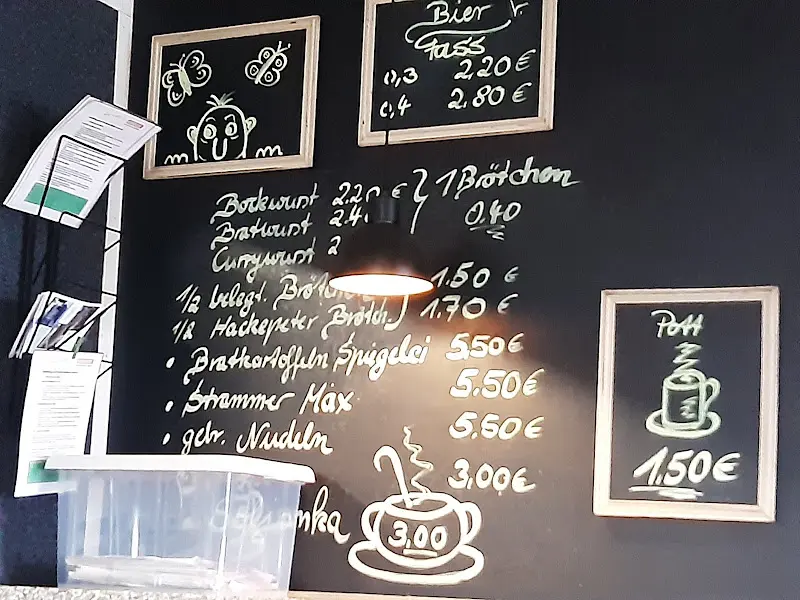 Bier v.
Fass
0,3 2,20 €
0,4 2.80 €
Bockwurst 2.20 € } 1 Brötchen
Bratwurst 2.4 0.40
Currywurst 2
1/2 belegt. Bröt 1.50 €
1/2 Hackepeter Brötch. 1.70 €
• Bratkartoffeln Spiegelei 5,50€
• Strammer Max 5.50€
• gebr. Nudeln 5.50€
3,00€
Soljanka 3,00
Pott
1,50€